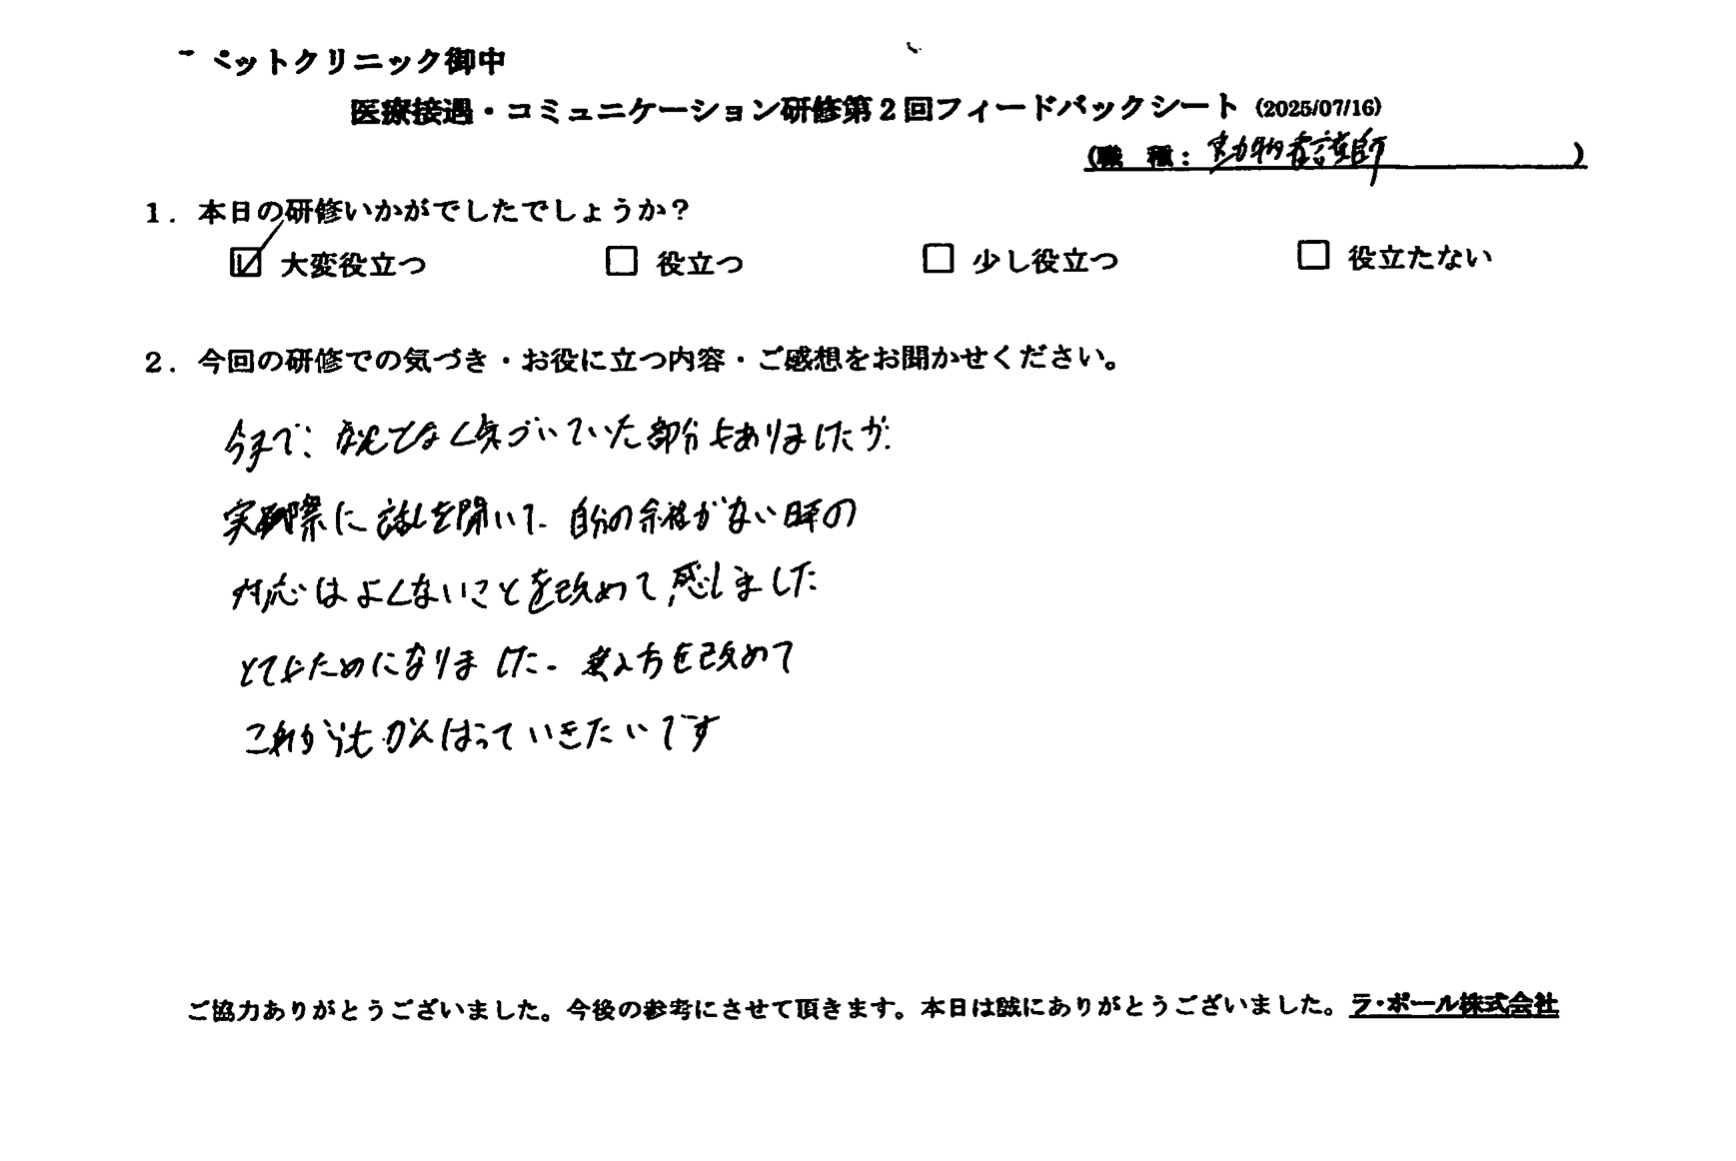 ペットクリニック御中
医療接遇・コミュニケーション研修第2回フィードバックシート (2025/07/16)
(職 種: 動物看護師 )
1. 本日の研修いかがでしたでしょうか?
☑ 大変役立つ □ 役立つ □ 少し役立つ □ 役立たない
2. 今回の研修での気づき・お役に立つ内容・ご感想をお聞かせください。
今まで、なんとなく気づいていた部分もありましたが
実際に話しを聞いて、自分の余裕がない時の
対応はよくないことを改めて感じました
とてもためになりました。考え方を改めて
これからもがんばっていきたいです
ご協力ありがとうございました。今後の参考にさせて頂きます。本日は誠にありがとうございました。ラ・ポール株式会社